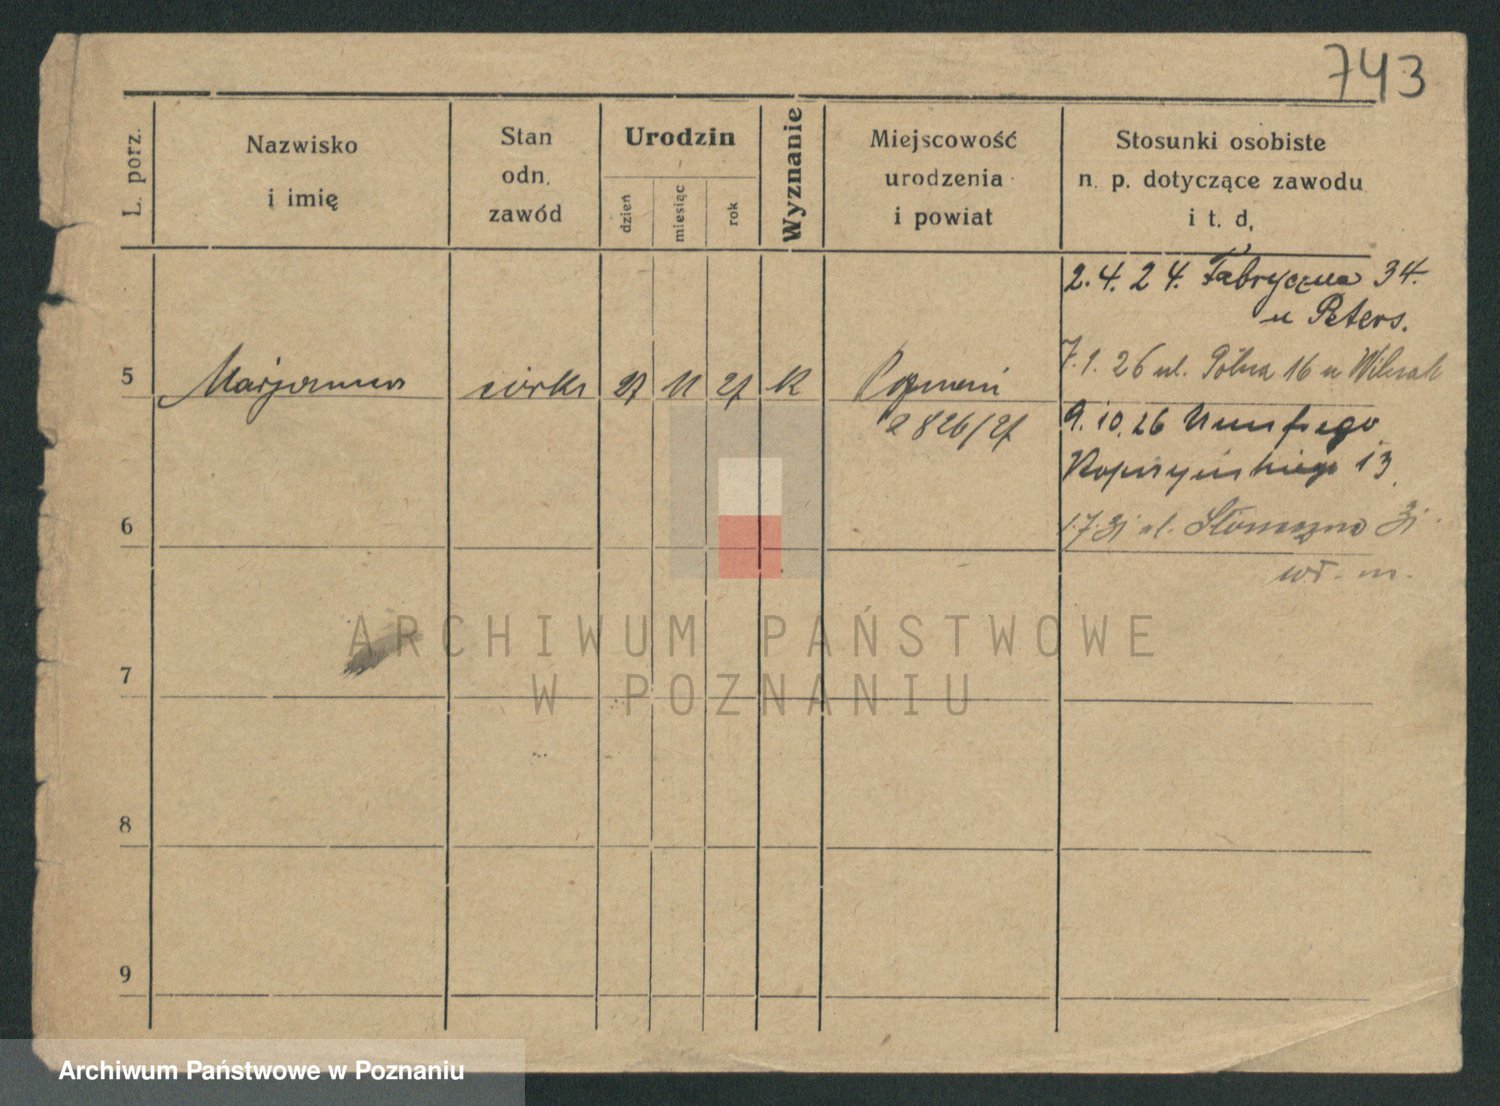 743
L. porz.
Nazwisko
i imię
Stan
odn.
zawód
Urodzin
dzień
miesiąc
rok
Wyznanie
Miejscowość
urodzenia
i powiat
Stosunki osobiste
n. p. dotyczące zawodu
i t. d,
2.4.24. Fabryczna 34.
u Peters.
7.1.26 ul. Polna 16 u
5 Marjanna córka 11 27 K Poznań
826/27
9.10.26
13
6
ul. Słoneczna
7
8
9
ARCHIWUM PAŃSTWOWE
W POZNANIU
Archiwum Państwowe w Poznaniu